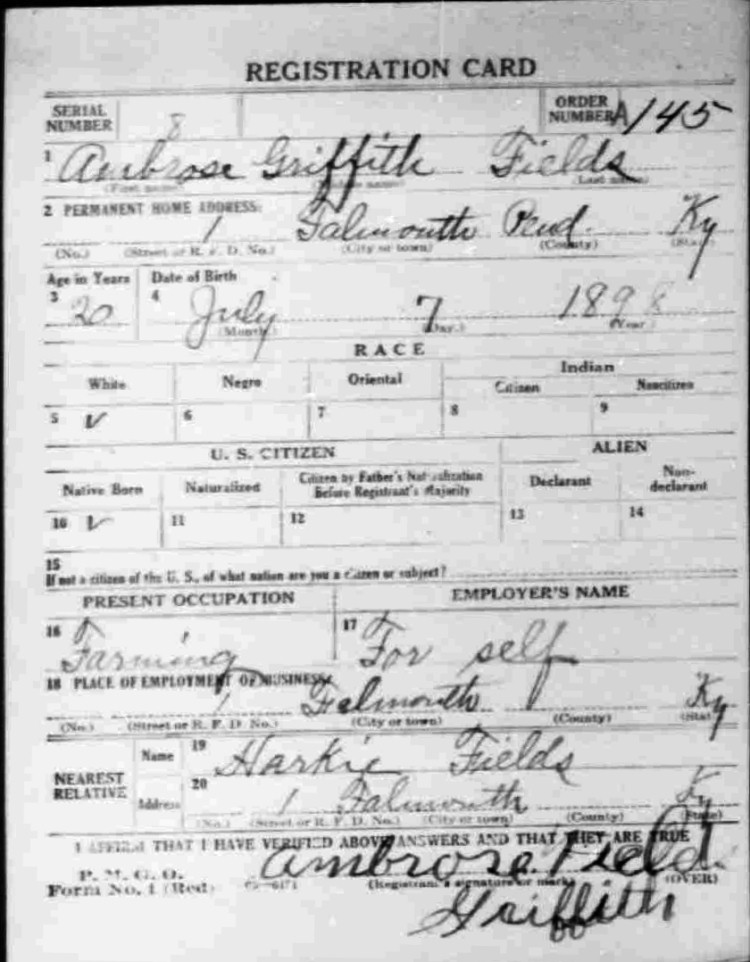 REGISTRATION CARD
SERIAL NUMBER 8 ORDER NUMBER A 145
1 Ambrose Griffith Fields
(First name) (Middle name) (Last name)
2 PERMANENT HOME ADDRESS:
1 Falmouth Pend. Ky
(No.) (Street or R. F. D. No.) (City or town) (County) (State)
Age in Years Date of Birth
3 20 4 July 7 1898
(Month) (Day.) (Year)
RACE
White Negro Oriental Indian
Citizen Noncitizen
5 V 6 7 8 9
U. S. CITIZEN ALIEN
Native Born Naturalized Citizen by Father's Naturalization Before Registrant's Majority Declarant Non-declarant
10 V 11 12 13 14
15
If not a citizen of the U. S., of what nation are you a citizen or subject?
PRESENT OCCUPATION EMPLOYER'S NAME
16 Farming 17 For self
18 PLACE OF EMPLOYMENT OR BUSINESS:
1 Falmouth Ky
(No.) (Street or R. F. D. No.) (City or town) (County) (State)
NEAREST RELATIVE
Name 19 Harkie Fields
Address 20 1 Falmouth Ky
(No.) (Street or R. F. D. No.) (City or town) (County) (State)
I AFFIRM THAT I HAVE VERIFIED ABOVE ANSWERS AND THAT THEY ARE TRUE
P. M. G. O.
Form No. 1 (Red) Ambrose Field
(Registrant's signature or mark) (OVER)
Griffith